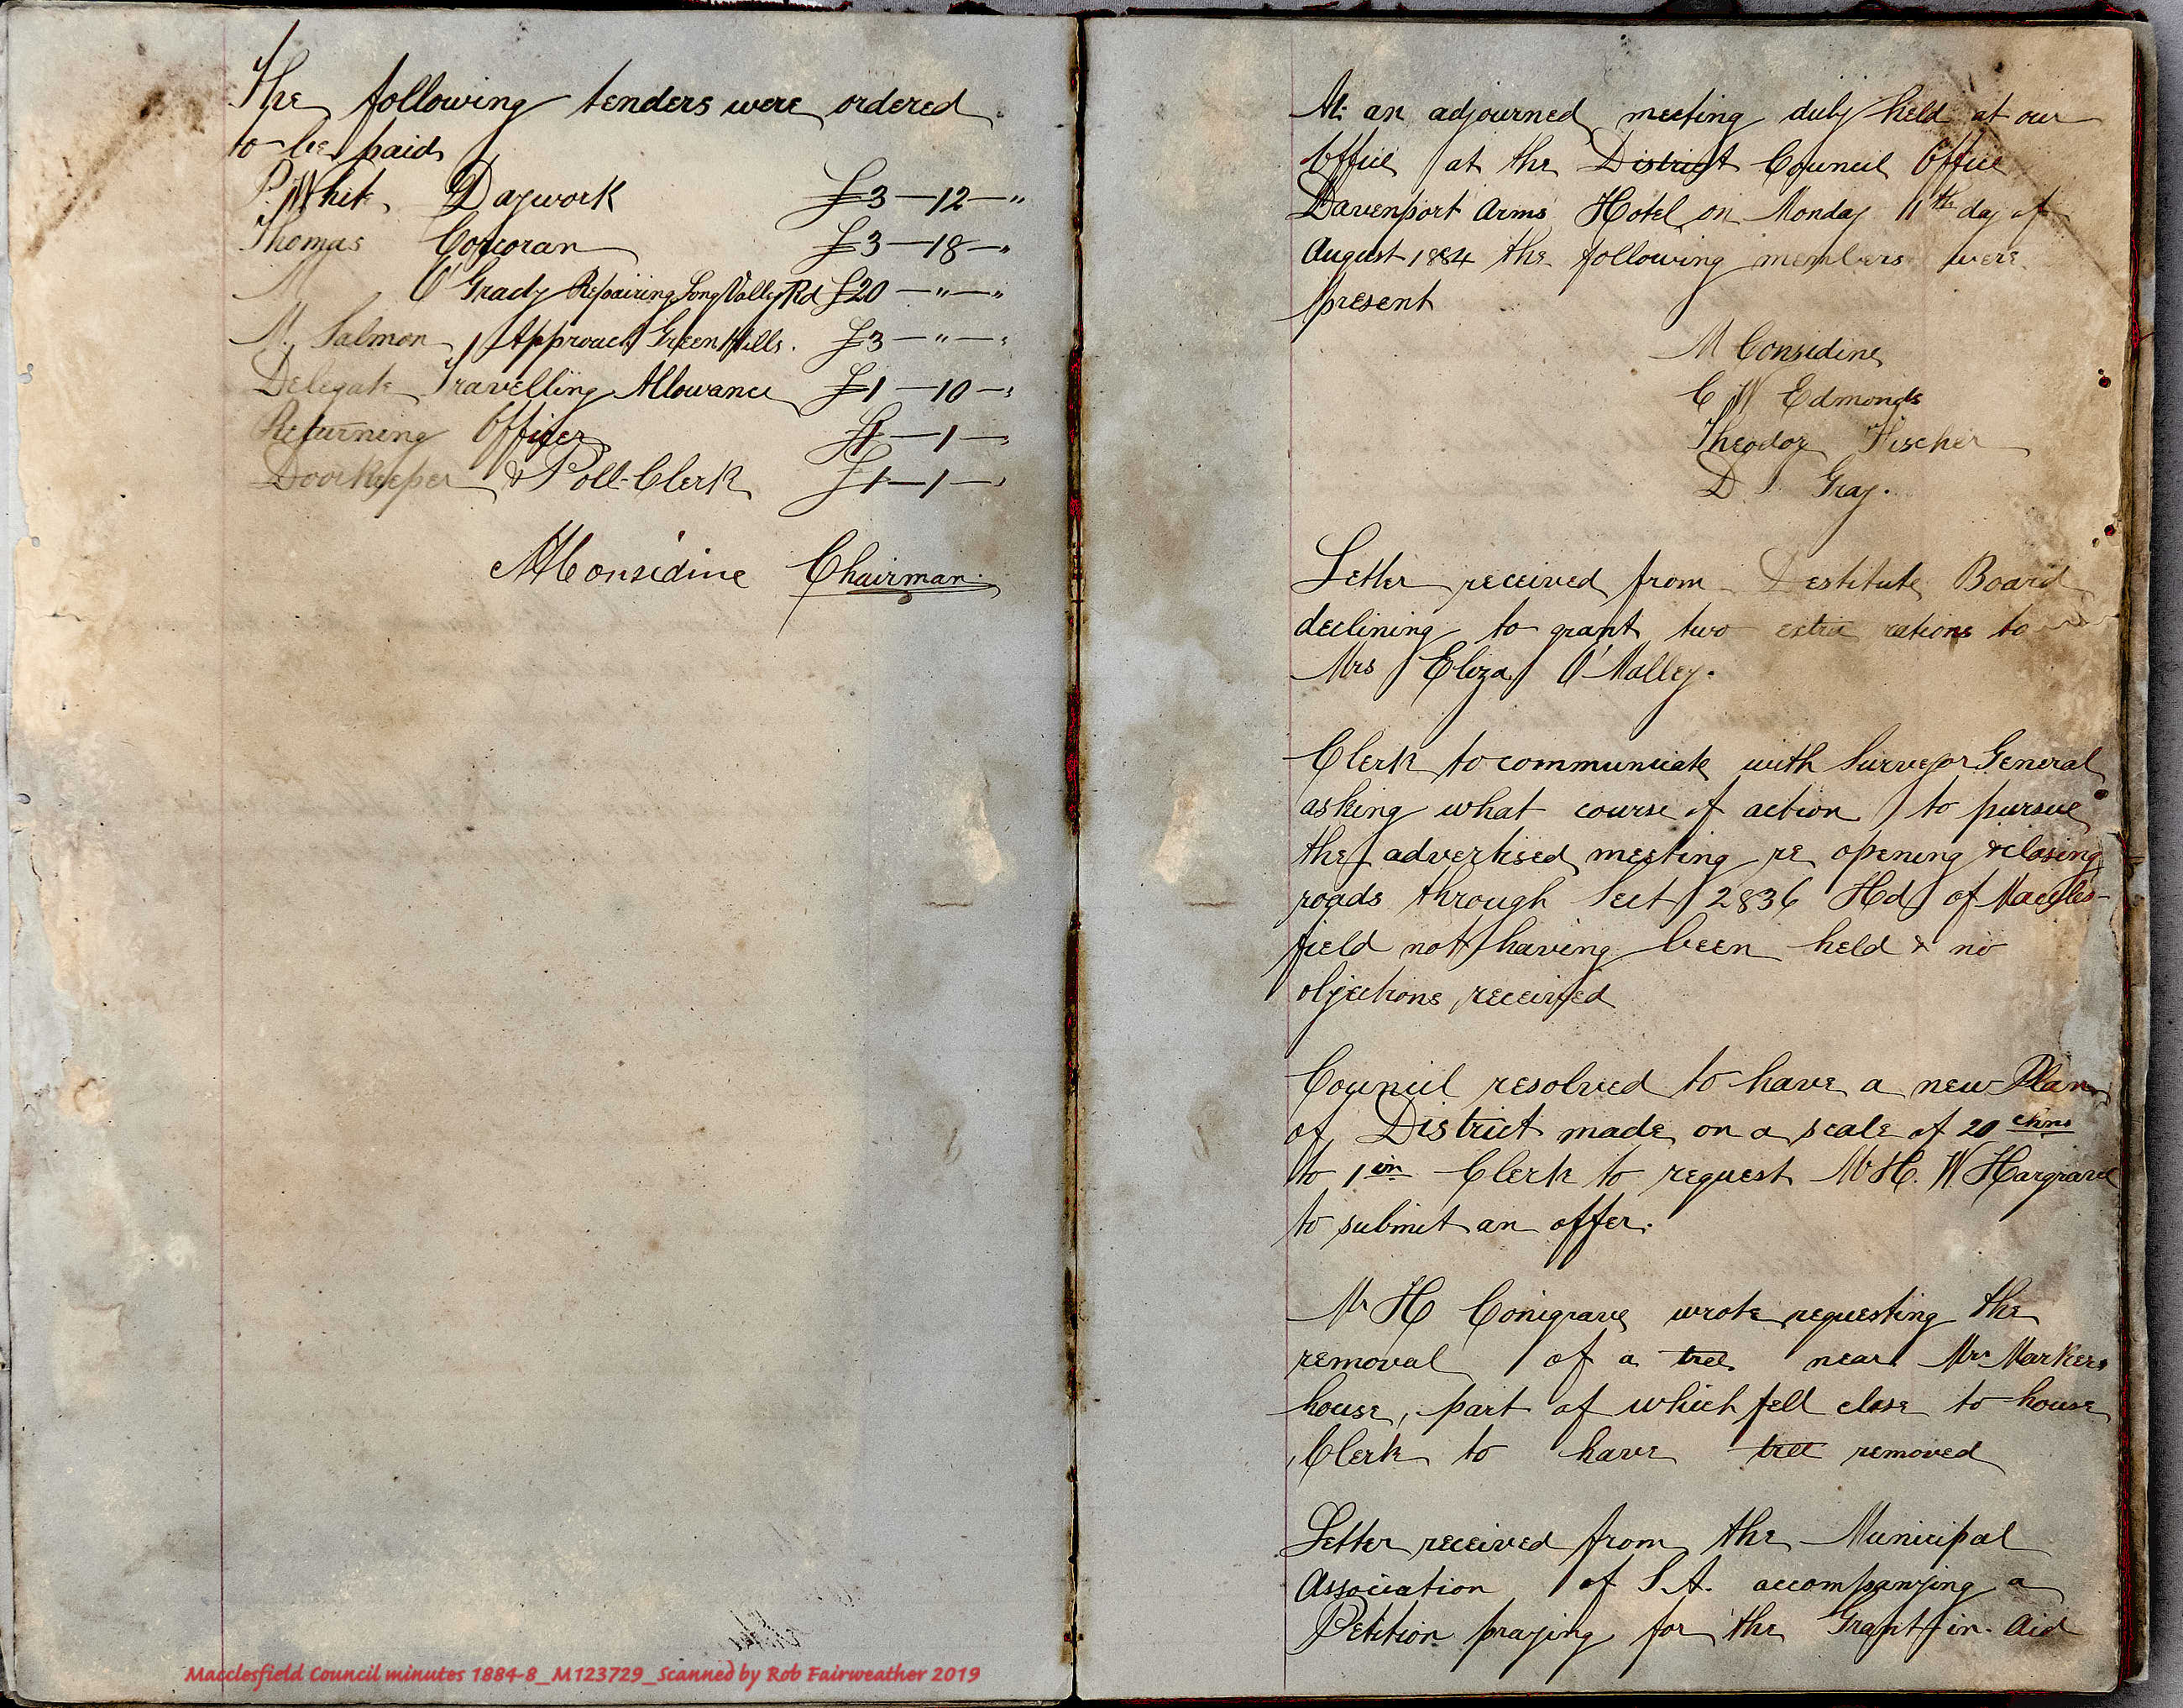 The following tenders were ordered
to be paid
P. White Daywork £3—12—"
Thomas Corcoran £3—18—"
M O'Grady Repairing Long Valley Rd £20—"—"
M. Salmon Approach Green Hills. £3—"—"
Delegate Travelling Allowance £1—10—"
Returning Officer £1—1—"
Doorkeeper & Poll-Clerk £1—1—"
M Considine Chairman
At an adjourned meeting duly held at our
Office at the District Council Office
Davenport Arms Hotel on Monday 11th day of
August 1884 the following members were
present
M Considine
C W Edmonds
Theodor Fischer
D Gray.
Letter received from Destitute Board
declining to grant two extra rations to
Mrs Eliza O'Malley.
Clerk to communicate with Surveyor General
asking what course of action to pursue
the advertised meeting re opening & closing
roads through Sect 2836 Hd of Maccles-
field not having been held & no
objections received
Council resolved to have a new Plan
of District made on a scale of 20 chns
to 1 in Clerk to request Mr H. W Hargrave
to submit an offer.
Mr H Conigrave wrote requesting the
removal of a tree near Mrs Markers
house, part of which fell close to house
Clerk to have tree removed
Letter received from the Municipal
Association of S.A. accompanying a
Petition praying for the Grant-in-Aid
Macclesfield Council minutes 1884-8_M123729_Scanned by Rob Fairweather 2019